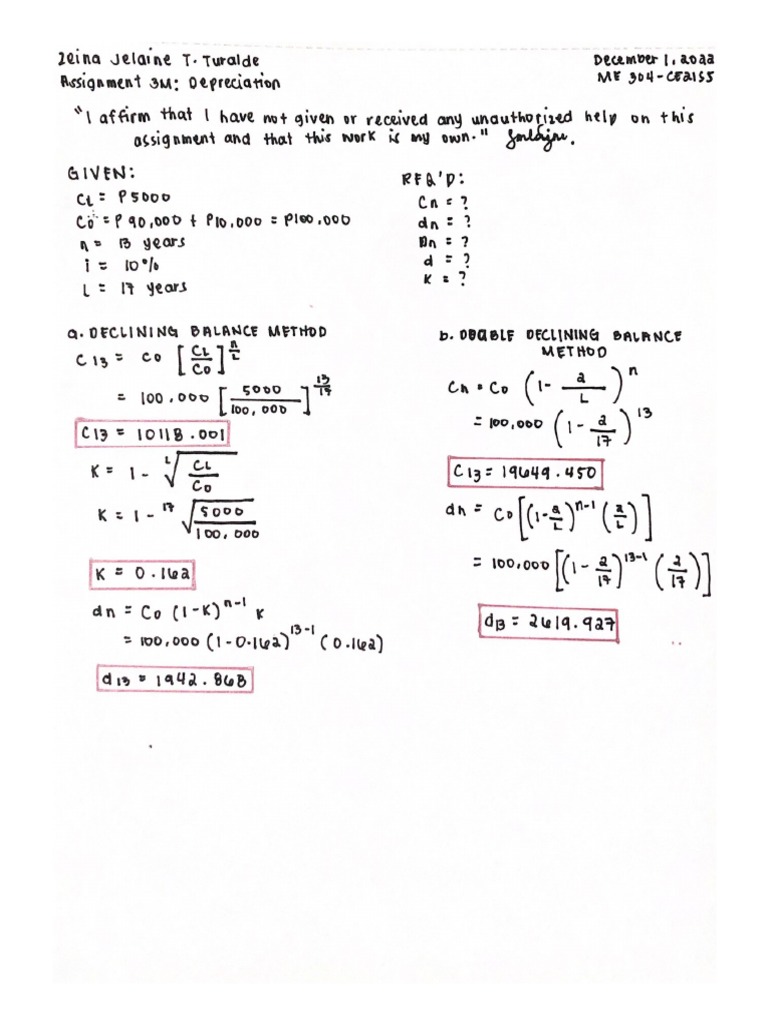 Zeina Jelaine T. Turalde
December 1, 2022
Assignment 3M: Depreciation
ME 304-CE21S5
"I affirm that I have not given or received any unauthorized help on this
assignment and that this work is my own."
GIVEN:
CL = P5000
Co = P 90,000 + P10,000 = P100,000
n = 13 years
i = 10%
L = 17 years
REQ'D:
Cn = ?
dn = ?
Dn = ?
d = ?
K = ?
a. DECLINING BALANCE METHOD
C13 = Co [CL/Co]^n/L
= 100,000 [5000/100,000]^13/17
C13 = 10118.001
K = 1 - L√CL/Co
K = 1 - 17√5000/100,000
K = 0.162
dn = Co (1-K)^n-1 K
= 100,000 (1-0.162)^13-1 (0.162)
d13 = 1942.868
b. DOUBLE DECLINING BALANCE
METHOD
Cn = Co (1 - 2/L)^n
= 100,000 (1 - 2/17)^13
C13 = 19649.450
dn = Co [(1-2/L)^n-1 (2/L)]
= 100,000 [(1 - 2/17)^13-1 (2/17)]
d13 = 2619.927